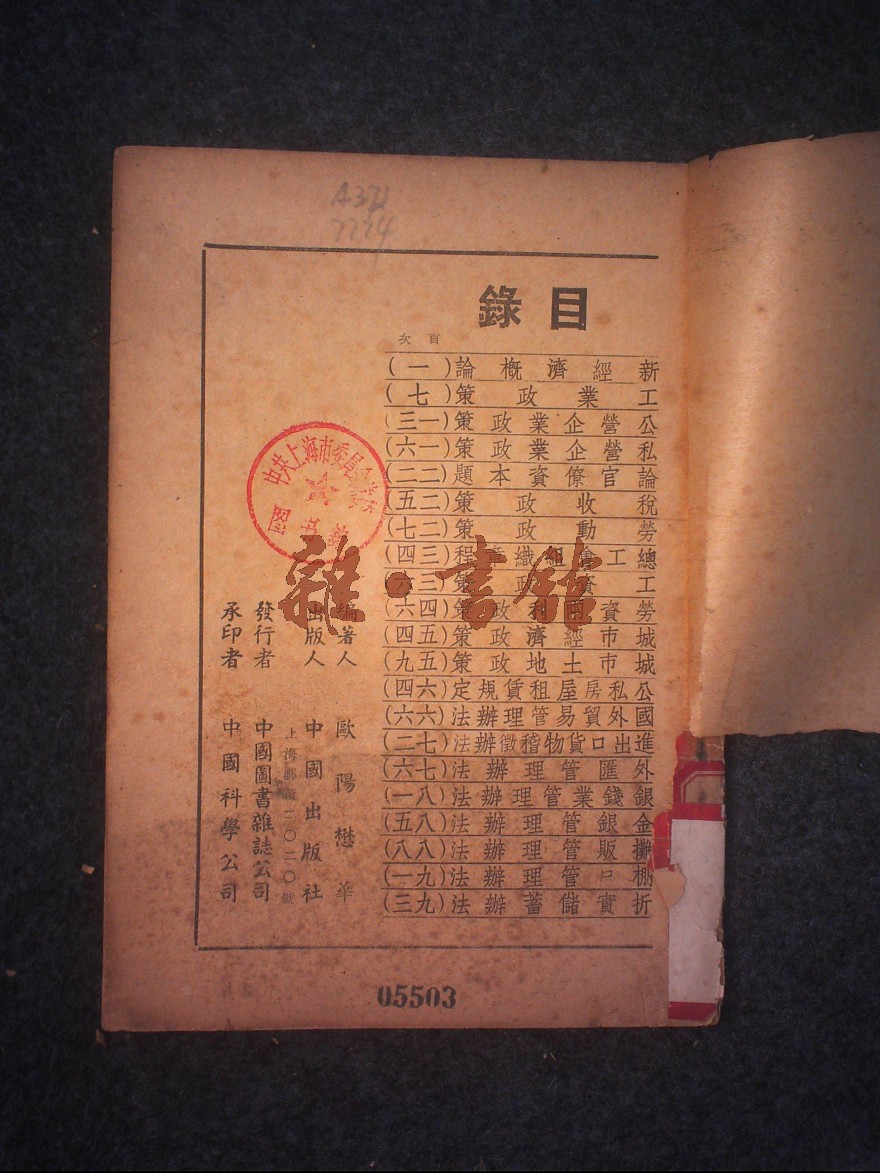 A371
7774
目錄
頁次
新經濟概論(一)
工業政策(七)
公營企業政策(一三)
私營企業政策(一六)
論官僚資本題(二二)
稅收政策(二五)
勞動政策(二七)
總工會組織程(三四)
工資政策(三六)
勞資兩利政策(四六)
城市經濟政策(五四)
城市土地政策(五九)
公私房屋租賃規定(六四)
國外貿易管理辦法(六六)
進出口貨物稽徵辦法(七二)
外匯管理辦法(七六)
銀錢業管理辦法(八一)
金銀管理辦法(八五)
攤販管理辦法(八八)
棚口管理辦法(九一)
折實儲蓄辦法(九三)
編著人 歐陽懋華
出版人 中國出版社
上海郵箱二〇二〇號
發行者 中國圖書雜誌公司
承印者 中國科學公司
中共上海市委員會
图书馆
雜·書館
05503